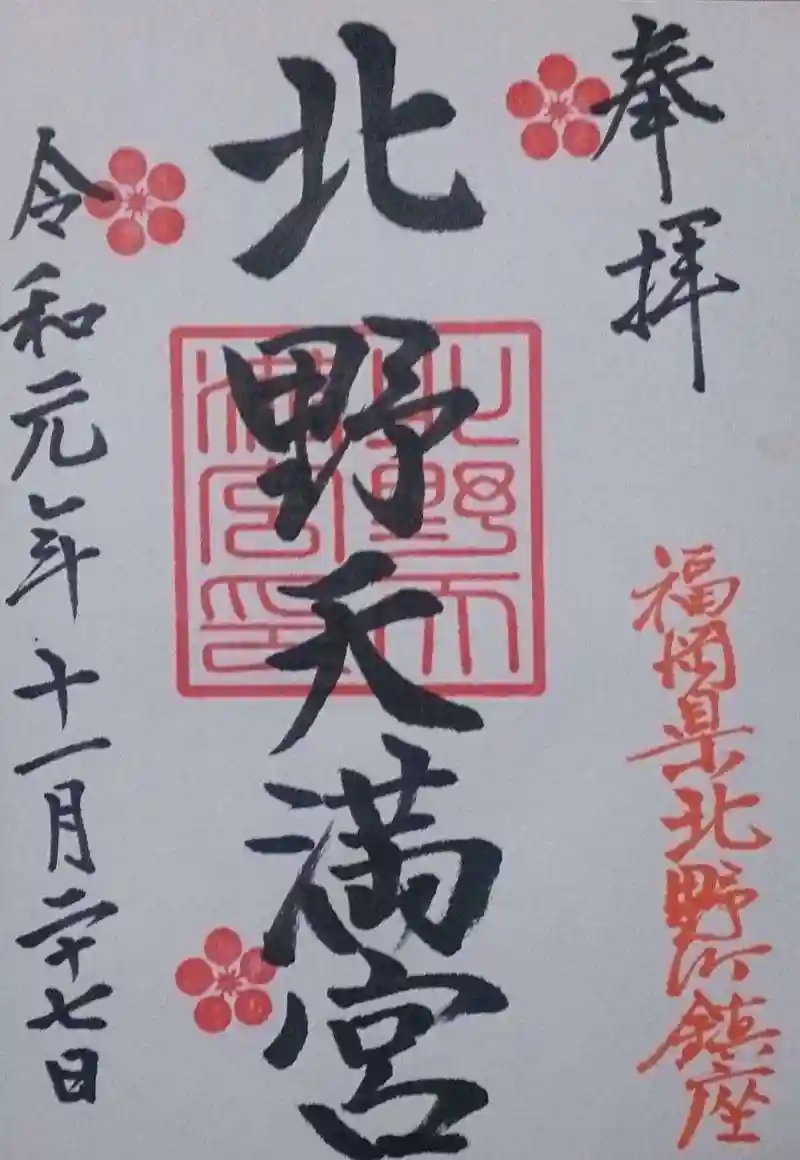 奉拝
福岡県北野町鎮座
北野天満宮
北野天
満宮印
令和元年十一月二十七日